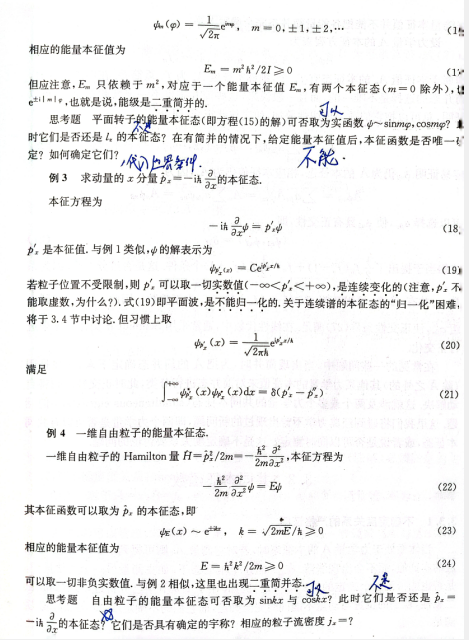 ψₘ(φ) = 1/√2π e^{imφ}, m = 0, ±1, ±2, ⋯
相应的能量本征值为
Eₘ = m²ħ²/2I ⩾ 0
但应注意, Eₘ 只依赖于 m², 对应于一个能量本征值 Eₘ, 有两个本征态(m = 0 除外),
e^{±i|m|φ}, 也就是说, 能级是二重简并的.
可以
思考题 平面转子的能量本征态(即方程(15)的解)可否取为实函数 ψ~sinmφ, cosmφ?
不是
时它们是否还是 l_z 的本征态? 在有简并的情况下, 给定能量本征值后, 本征函数是否唯一
定? 如何确定它们? 代入边界条件. 不能.
例 3 求动量的 x 分量 p̂ₓ = −iħ ∂/∂x 的本征态.
本征方程为
−iħ ∂/∂x ψ = p′ₓψ (18)
p′ₓ 是本征值. 与例 1 类似, ψ 的解表示为
ψ_{p′ₓ}(x) = Ce^{ip′ₓx/ħ} (19)
若粒子位置不受限制, 则 p′ₓ 可以取一切实数值(−∞<p′ₓ<+∞), 是连续变化的(注意, p′ₓ 不
能取虚数, 为什么?). 式(19)即平面波, 是不能归一化的. 关于连续谱的本征态的“归一化”困难,
将于 3.4 节中讨论. 但习惯上取
ψ_{p′ₓ}(x) = 1/√2πħ e^{ip′ₓx/ħ} (20)
满足
∫_{−∞}^{+∞} ψ*_{p′ₓ}(x)ψ_{p″ₓ}(x)dx = δ(p′ₓ − p″ₓ) (21)
例 4 一维自由粒子的能量本征态.
一维自由粒子的 Hamilton 量 Ĥ = p̂ₓ²/2m = −ħ²/2m ∂²/∂x², 本征方程为
−ħ²/2m ∂²/∂x² ψ = Eψ (22)
其本征函数可以取为 p̂ₓ 的本征态, 即
ψ_E(x) ~ e^{±ikx}, k = √2mE/ħ ⩾ 0 (23)
相应的能量本征值为
E = ħ²k²/2m ⩾ 0 (24)
可以取一切非负实数值. 与例 2 相似, 这里也出现二重简并态. 可以 不是
思考题 自由粒子的能量本征态可否取为 sinkx 与 coskx? 此时它们是否还是 p̂ₓ =
−iħ ∂/∂x 的本征态? 它们是否具有确定的宇称? 相应的粒子流密度 jₓ = ?